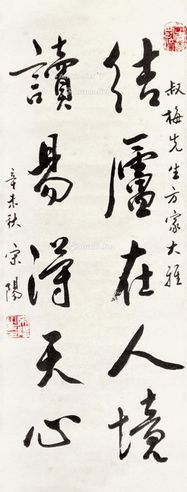 叔梅先生方家大雅
结廬在人境
讀易得天心
辛未秋宗陽